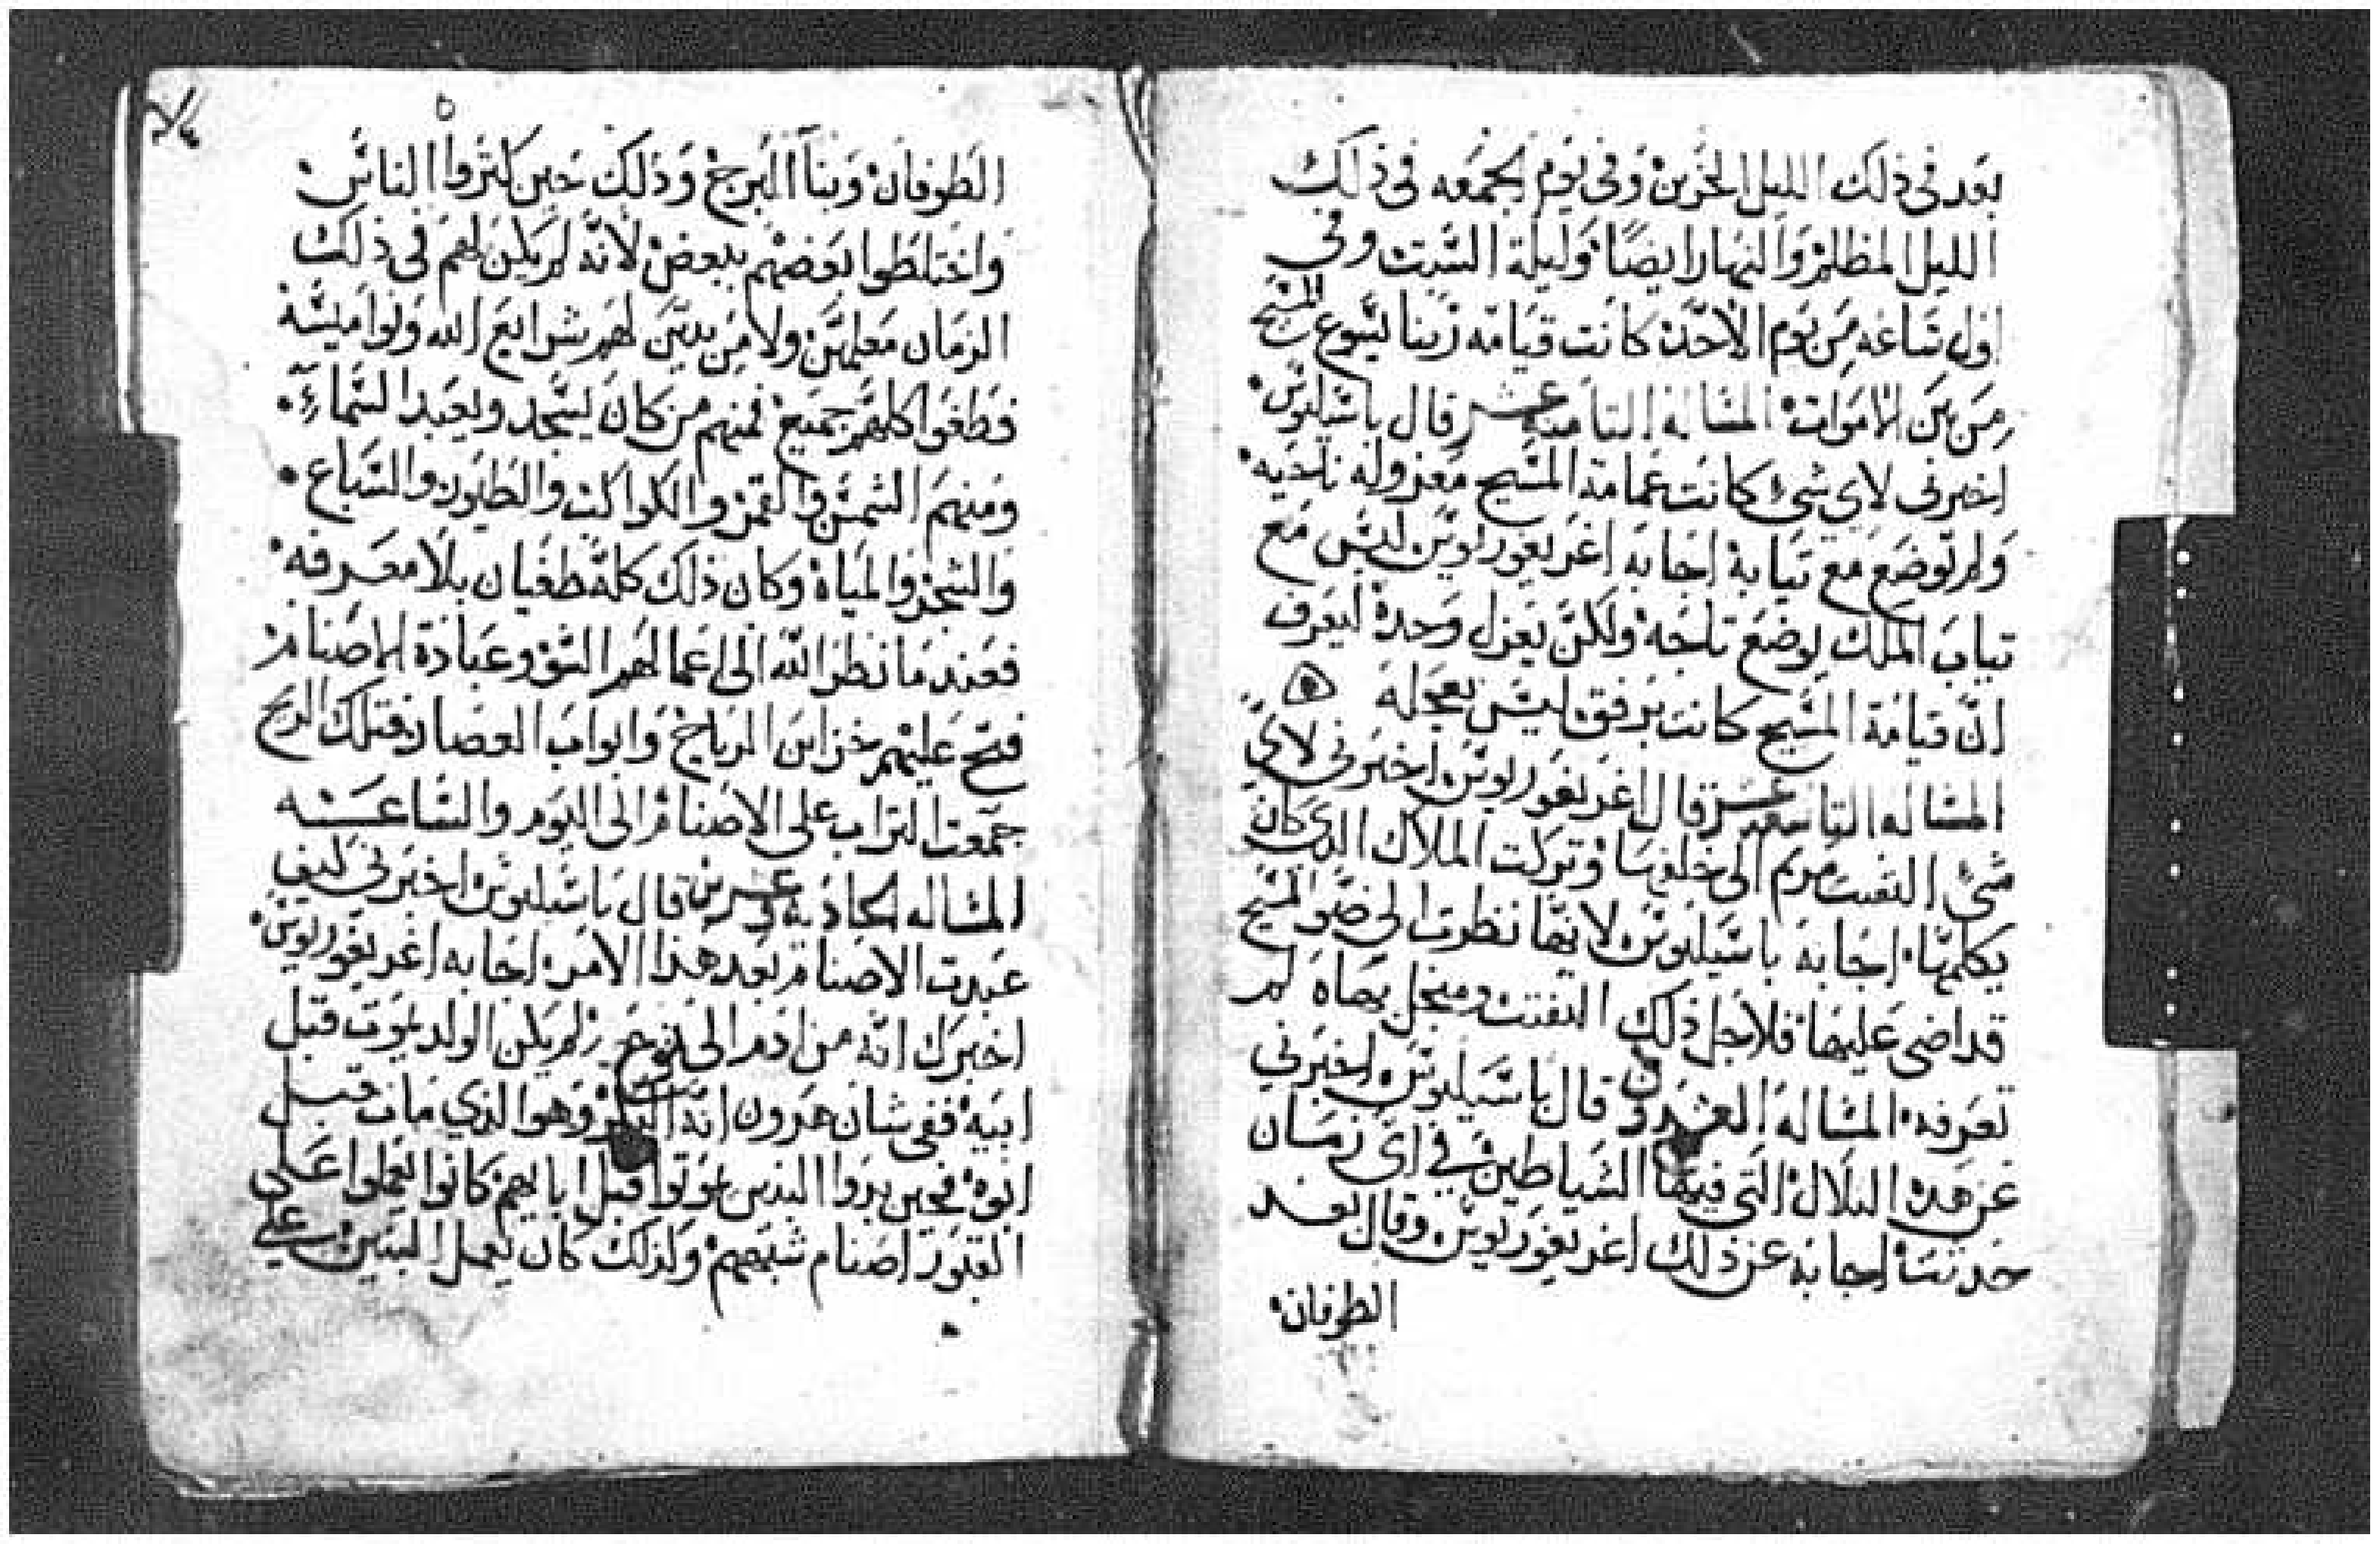 بعد فى ذلك الليل الحزين وفى يوم الجمعه فى ذلك
الليل المظلم والنهار ايضا وليلة السبت وفى
اول ساعه من يوم الاحد كانت قيامة ربنا يسوع المسيح
من بين الاموات المساله الثامنه عشر قال باسيليوس
اخبرنى لاي شئ كانت عمامة المسيح معزوله ناحيه
ولم توضع مع ثيابه اجابه اغريغوريوس ليس مع
ثياب الملك يوضع تاجه ولكن يعزل وحده ليعرف
ان قيامة المسيح كانت برفق ليس بعجله
المساله التاسعه عشر قال اغريغوريوس اخبرنى لاي
شئ التفتت مريم الى خلفها وتركت الملاك الذى كان
يكلمها اجابه باسيليوس لانها نظرت الى ضو المسيح
قد اضى عليها فلاجل ذلك التفتت ومنجل بهاه لم
تعرفه المساله العشرون قال باسيليوس اخبرنى
عن هذه التلال التى فيها الشياطين فى اى زمان
حدثت اجابه عن ذلك اغريغوريوس وقال بعد
الطوفان
٥
الطوفان وبنا البرج وذلك حين كثروا الناس
واختلطوا بعضهم ببعض لانه لم يكن لهم فى ذلك
الزمان معلمين ولا من يبين لهم شرايع الله ونواميسه
فطغوا كلهم جميع فمنهم من كان يسجد ويعبد السماء
ومنهم الشمس والقمر والكواكب والطيور والسباع
والشجر والمياه وكان ذلك كله طغيان بلا معرفه
فعند ما نظر الله الى اعمالهم السو وعبادة الاصنام
فتح عليهم خزاين الرياح وابواب العصار فتلك الريح
جمعت التراب على الاصنام الى اليوم والساعه
المساله الحاديه وعشرين قال باسيليوس اخبرنى كيف
عبدت الاصنام بعد هذا الامر اجابه اغريغوريوس
اخبرك انه من ادم الى نوح لم يكن الولد يموت قبل
ابيه ففى شان هرون انه البكر وهوا الذي مات قبل
ابوه فحين بدوا البنين يموتوا قبل ابايهم كانوا يعملوا على
القبور اصنام شبههم ولذلك كان يعمل البنين على